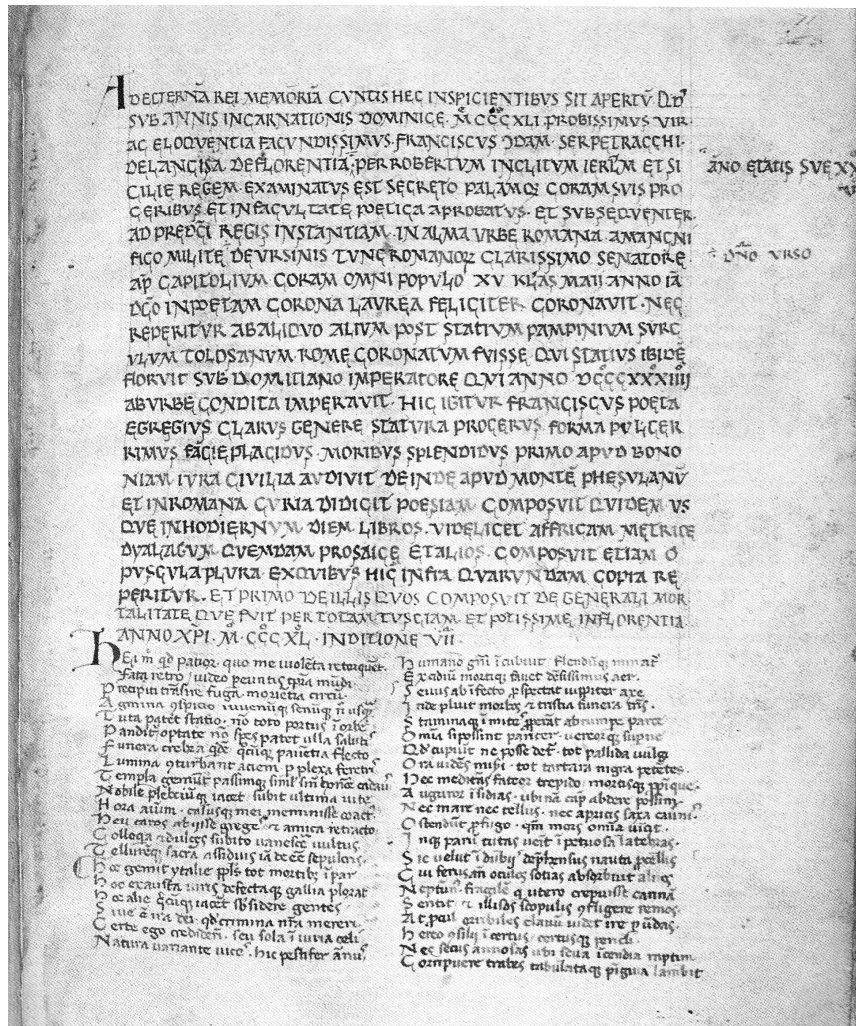 ADETERNĀ REI MEMORIĀ CVNTIS HEC INSPICIENTIBVS SIT APERTV̄ Q̄D
SVB ANNIS INCARNATIONIS DOMINICE. M̊CCCXLI PROBISSIMVS VIR·
AC ELOQVENTIA FACVNDISSIMVS. FRANCISCVS ꝖDAM. SERPETRACCHI·
DELANCISA DEFLORENTIA; PERROBERTVM INCLITVM IERLM̄ ET SI
CILIE REGEM EXAMINATVS EST SECRETO PALAMQꝫ CORAM SVIS PRO
CERIBVS ET IN FACVLTATE POETICA APROBATVS· ET SVBSEQVENTER
AD PREDC̄I REGIS INSTANTIAM. IN ALMA VRBE ROMANA. AMANGNI
FICO MILITE DEVRSINIS TVNC ROMANOꝜ CLARISSIMO SENATORĘ
AP̄ CAPITOLIVM CORAM OMNI POPVLO XV KL̄AS MAII ANNO IĀ
DC̄O INPOETAM CORONA LAVREA FELICITER CORONAVIT· NEC
REPERITVR ABALIQVO ALIVM POST STATIVM PAMPINIVM SVRC
VLVM TOLOSANVM ROMĘ CORONATVM FVISSE QVI STATIVS IBIDĒ
FLORVIT SVB DOMITIANO IMPERATORĘ QVI ANNO DCCCXXXIIII
ABVRBE CONDITA IMPERAVIT· HIC IGITVR FRANCISCVS POETA
EGREGIVS CLARVS GENERE STATVRA PROCERVS FORMA PVLCER
RIMVS FACIE PLACIDVS· MORIBVS SPLENDIDVS PRIMO APVD BONO
NIAM IVRA CIVILIA AVDIVIT DEINDE APVD MONTĒ PHESVLANV̄
ET INROMANA CVRIA DIDICIT POESIAM COMPOSVIT QVIDEM VS
QVE INHODIERNVM DIEM LIBROS. VIDELICET AFFRICAM METRICE
DYALAGVM QVEMDAM PROSAICE ET ALIOS. COMPOSVIT ETIAM O
PVSCVLA PLVRA· EXQVIBVS HIC INFRA QVARVNDAM COPIA RE
PERITVR. ET PRIMO DE ILLIS QVOS COMPOSVIT DE GENERALI MOR
TALITATE QVE FVIT PER TOTAM TVSCIAM· ET POTISSIME INFLORENTIA
ANNO XPI· M̊CCCXL· INDITIONE VII·
ĀNO ETATIS SVE XX
DN̄O VRSO
Hei m̄ qd patior. quo me violēta retorquēt.
Fata retro / video peuntis tp̄ra mūdi
Precipiti trāsire fugā. morietia circū.
Agmina ɔspicio iuvenūqꝫ senūqꝫ n̄ usqꝫ
Tuta patet statio. nō toto portus ī orbe
Panditur optate nō spes patet ulla saluti
Funera crebra qdē qcūqꝫ pauētia flecto
Lumina ɔturbant aciem. p plexa feretris
Templa gemūt passimqꝫ simul sīn honore cadaū
Nobile plebeiūqꝫ iacet. subit ultima vite
Hora aīum. casusqꝫ mei meminisse coacti
Heu caros abiisse greges. et amica retracto
Colloqa et dulces subito vanescē vultus
Tellurēqꝫ sacrā assiduis iā deēe sepulcris.
Hoc gemit ytalie ppl̄s tot mortibꝫ īpar
Hoc exausta viris defectaqꝫ gallia plorat
Hoc alie qcūqꝫ iacēt sb sidere gentes
Sive ē ira dei. qd crimina nr̄a mereri.
Certe ego crediderī. seu sola ī iuria celi
Natura variante vices. hic pestifer ānus
Humano gn̄i īcubuit. flendūqꝫ minatr̄
Exadiū mortiqꝫ favet dēsissimus aer.
Seuius ab ifecto pspectat iuppiter axe
Inde pluit morbos et tristia funera tr̄is.
Staminaqꝫ ī mites pperāt abrumpe parce
Omia si possint pariter. vereorqꝫ supne
Qd cupiūt ne posse det. tot pallida vulgi
Ora vidēs misi. tot tartara nigra petētes.
Hec meditās fateor trepido. mortisqꝫ ppiqꝫ
Auguror īsidias. ubi nā cap abdere possim.
Nec mare nec tellus. nec apricis saxa caūnis
Ostendūt pfugo. qm̄ mors omīa vicit.
Inqꝫ pani tutas venit īpetuosa latebras.
Sic velut ī dubiis dephensus nauta pcellis
Cui ferus an̄ oculos sotias absorbuit alnos
Neptūn. fragilēqꝫ utero crepuisse carinā
Sentit et illisos scopulis ɔfligere remos.
At pcul orribiles clavū videt ire p ūdas.
Hereo ɔsilii īcertus. certusqꝫ pericli.
Nec secus annosas ubi seva īcendia raptim
Corripuere trabes tabulataqꝫ pīguia lambit